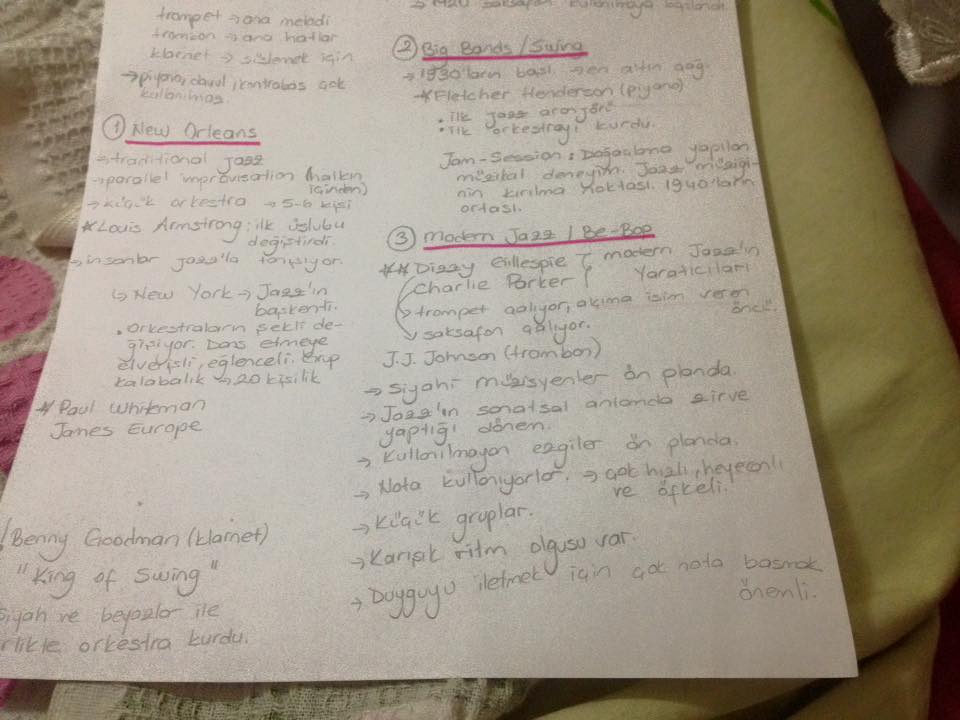 trompet → ana melodi
trombon → ana hatlar
klarnet → süslemek için
→ piyano, davul, kontrabas çok
kullanılmaz.
① New Orleans
→ traditional jazz
→ parallel improvisation (halkın
içinden)
→ küçük orkestra → 5-6 kişi
* Louis Armstrong: ilk üslubu
değiştirdi.
→ insanlar jazz'la tanışıyor.
↳ New York → Jazz'ın
başkenti.
• Orkestraların şekli de-
ğişiyor. Dans etmeye
elverişli, eğlenceli. Grup
kalabalık → 20 kişilik
* Paul Whiteman
James Europe
Benny Goodman (klarnet)
"King of Swing"
siyah ve beyazlar ile
birlikte orkestra kurdu.
saksafon kullanılmaya başlandı.
② Big Bands / Swing
→ 1930'ların başı. → en altın çağ.
* Fletcher Henderson (piyano)
• ilk jazz aranjörü
• ilk orkestrayı kurdu.
Jam-Session: Doğaçlama yapılan
müzikal deneyim. Jazz müziği-
nin kırılma noktası. 1940'ların
ortası.
③ Modern Jazz / Be-Bop
** Dizzy Gillespie } modern Jazz'ın
Charlie Parker } Yaratıcıları
→ trompet çalıyor, akıma isim veren
öncü.
→ saksafon çalıyor.
J.J. Johnson (trombon)
→ Siyahi müzisyenler ön planda.
→ Jazz'ın sanatsal anlamda zirve
yaptığı dönem.
→ Kullanılmayan ezgiler ön planda.
→ Nota kullanıyorlar. → çok hızlı, heyecanlı
ve öfkeli.
→ Küçük gruplar.
→ Karışık ritm olgusu var.
→ Duyguyu iletmek için çok nota basmak
önemli.